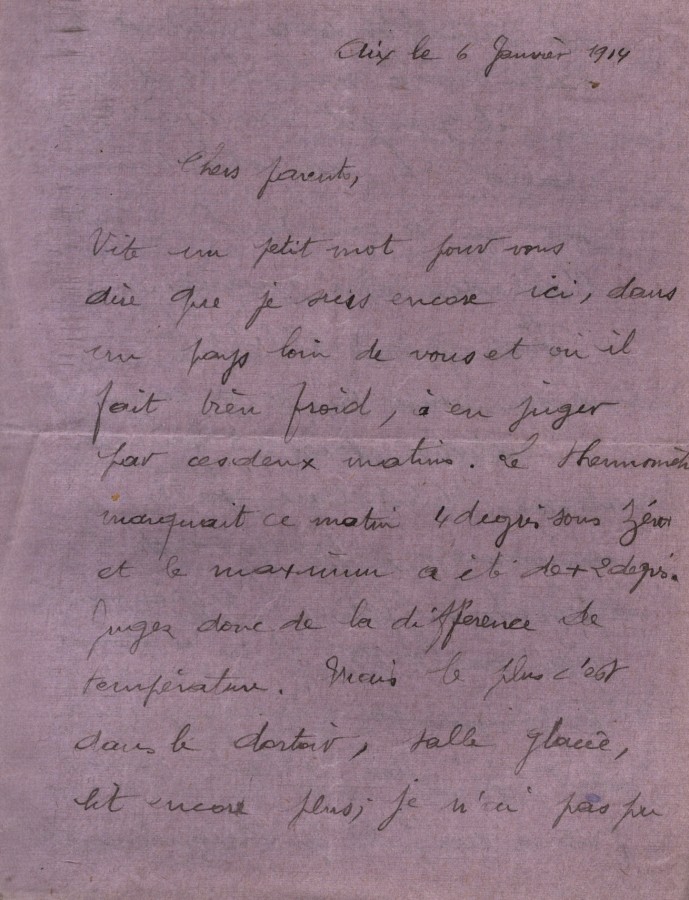 Aix le 6 Janvièr 1914
Chers parents,
Vite un petit mot pour vous
dire que je suis encore ici, dans
un pays loin de vous et où il
fait bien froid, à en juger
par ces deux matins. Le thermomèt
marquait ce matin 4 degrés sous zéro
et le maximum a été de + 2 degrés.
Jugez donc de la différence de
température. Mais le plus c'est
dans le dortoir, salle glacée,
lit encore plus; je n'ai pas pu